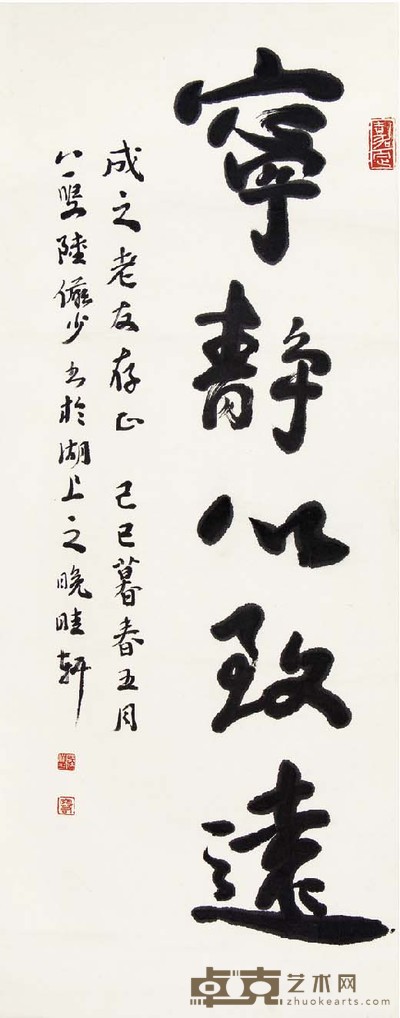 寧靜以致遠
成之老友存正 己巳暮春五月
八一叟陸儼少書於湖上之晚晴軒
卓克艺术网
zhuokearts.com